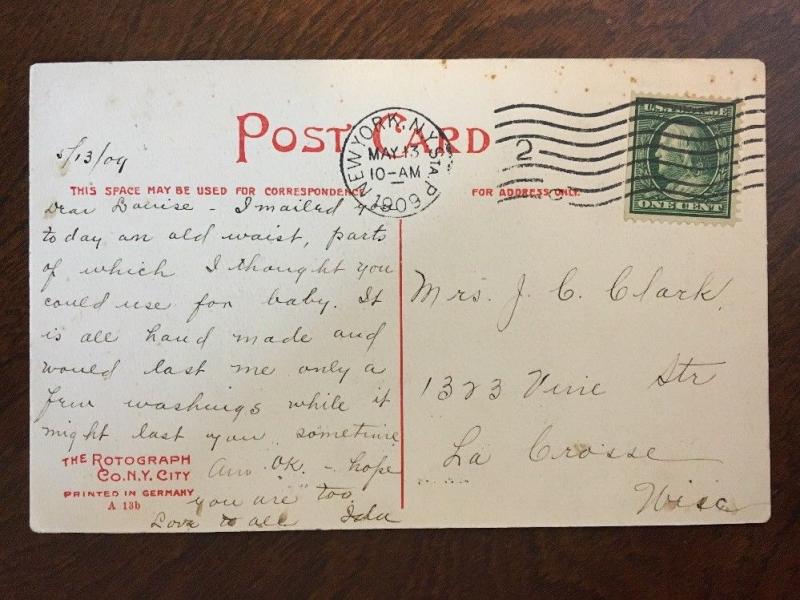 POST CARD
5/13/09
NEW YORK, N.Y. STA. P
MAY 13
10-AM
1909
2
U.S. POSTAGE
ONE CENT
THIS SPACE MAY BE USED FOR CORRESPONDENCE
FOR ADDRESS ONLY.
Dear Louise - I mailed you
to day an old waist, parts
of which I thought you
could use for baby. It
is all hand made and
would last me only a
few washings while it
might last you sometime
Am OK. - hope
you are too.
Love to all Ida
THE ROTOGRAPH
CO. N.Y. CITY
PRINTED IN GERMANY
A 13b
Mrs. J. C. Clark.
1323 Vine Str
La Crosse
Wisc